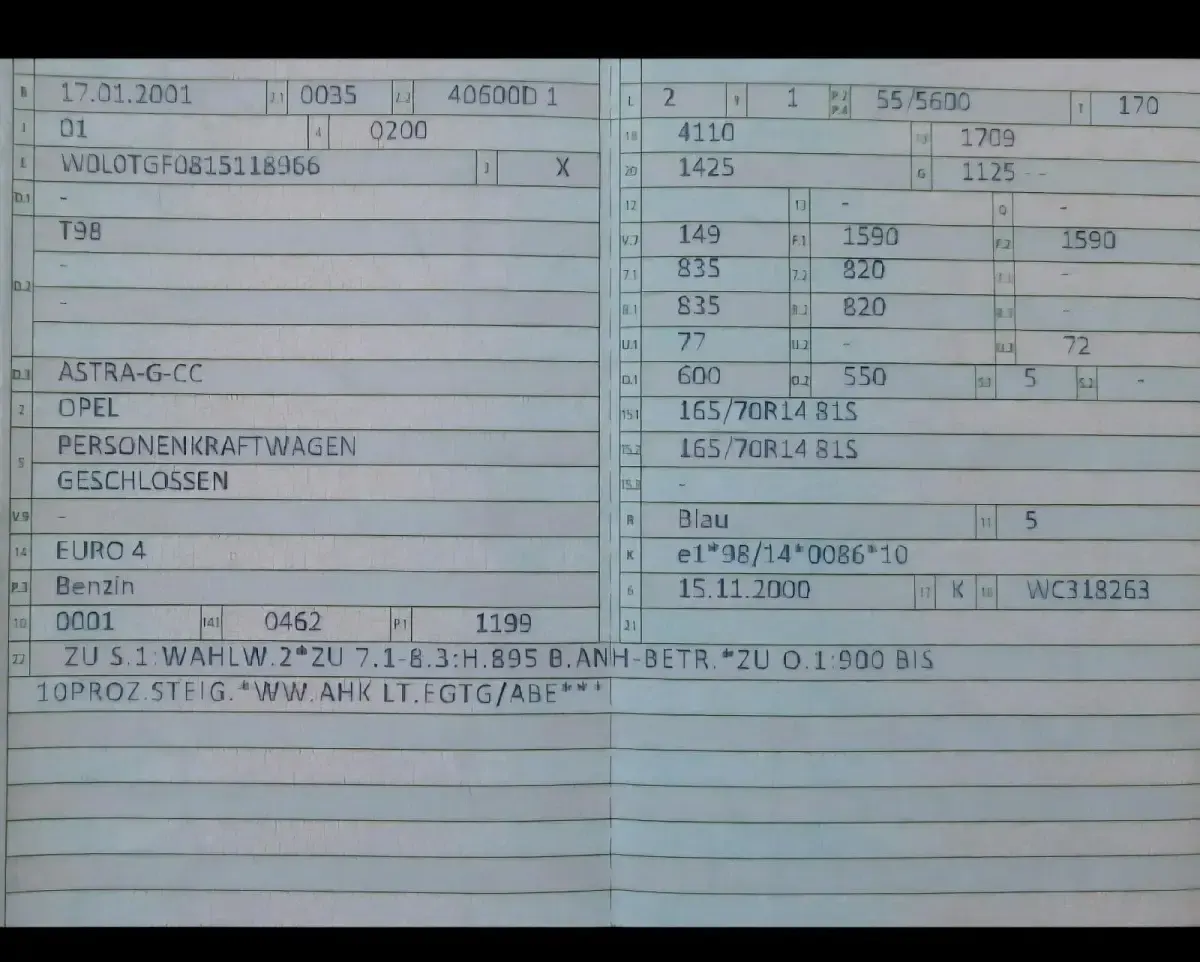 B 17.01.2001 2.1 0035 2.2 40600D 1
J 01 4 0200
E W0L0TGF0815118966 3 X
D.1 -
T98
D.2 -
-
D.3 ASTRA-G-CC
2 OPEL
5 PERSONENKRAFTWAGEN
GESCHLOSSEN
V.9 -
14 EURO 4
P.3 Benzin
10 0001 14.1 0462 P.1 1199
L 2 9 1 P.2 P.4 55/5600 T 170
18 4110 19 1709
20 1425 G 1125 - -
12 13 - Q -
V.7 149 F.1 1590 F.2 1590
7.1 835 7.2 820 7.3 -
8.1 835 8.2 820 8.3 -
U.1 77 U.2 - U.3 72
O.1 600 O.2 550 S.1 5 S.2 -
15.1 165/70R14 81S
15.2 165/70R14 81S
15.3 -
R Blau 11 5
K e1*98/14*0086*10
6 15.11.2000 17 K 16 WC318263
21
22 ZU S.1:WAHLW.2*ZU 7.1-8.3:H.895 B.ANH-BETR.*ZU O.1:900 BIS
10PROZ.STEIG.*WW.AHK LT.EGTG/ABE***